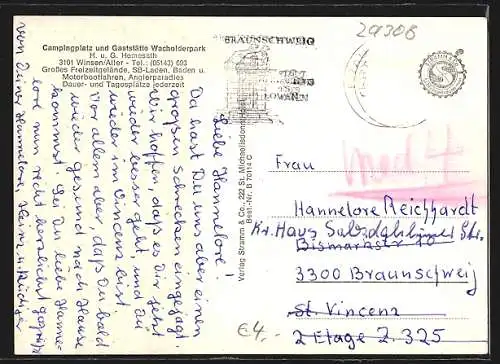 Campingplatz und Gaststätte Wacholderpark
H. u. G. Hemesath
3101 Winsen/Aller - Tel.: (05143) 603
Großes Freizeitgelände, SB-Laden, Baden u.
Motorbootfahren, Anglerparadies
Dauer- und Tagesplätze jederzeit
Liebe Hannelore!
Da hast Du uns aber einen
großen Schrecken eingejagt.
Wir hoffen, daß es Dir jetzt
wieder besser geht, und Du
wieder im Vincenz bist.
Vor allem aber, daß Du bald
wieder gesund nach Hause
kommst. Sei Du liebe Hanne-
lore nun recht herzlichst gegrüßt
von Deiner Hannelore, Heinz u. Rüdiger
Verlag Stramm & Co., 222 St. Michaelisdonn/Holst.
Best.-Nr. B 7014 C
BRAUNSCHWEIG
STADT
LÖWEN
29308
Med. 4
Frau
Hannelore Reichhardt
Kr. Haus Salzdahlumer Str.
Bismarckstr
3300 Braunschweig
St. Vincenz
2 Etage Z. 325
€ 4,-